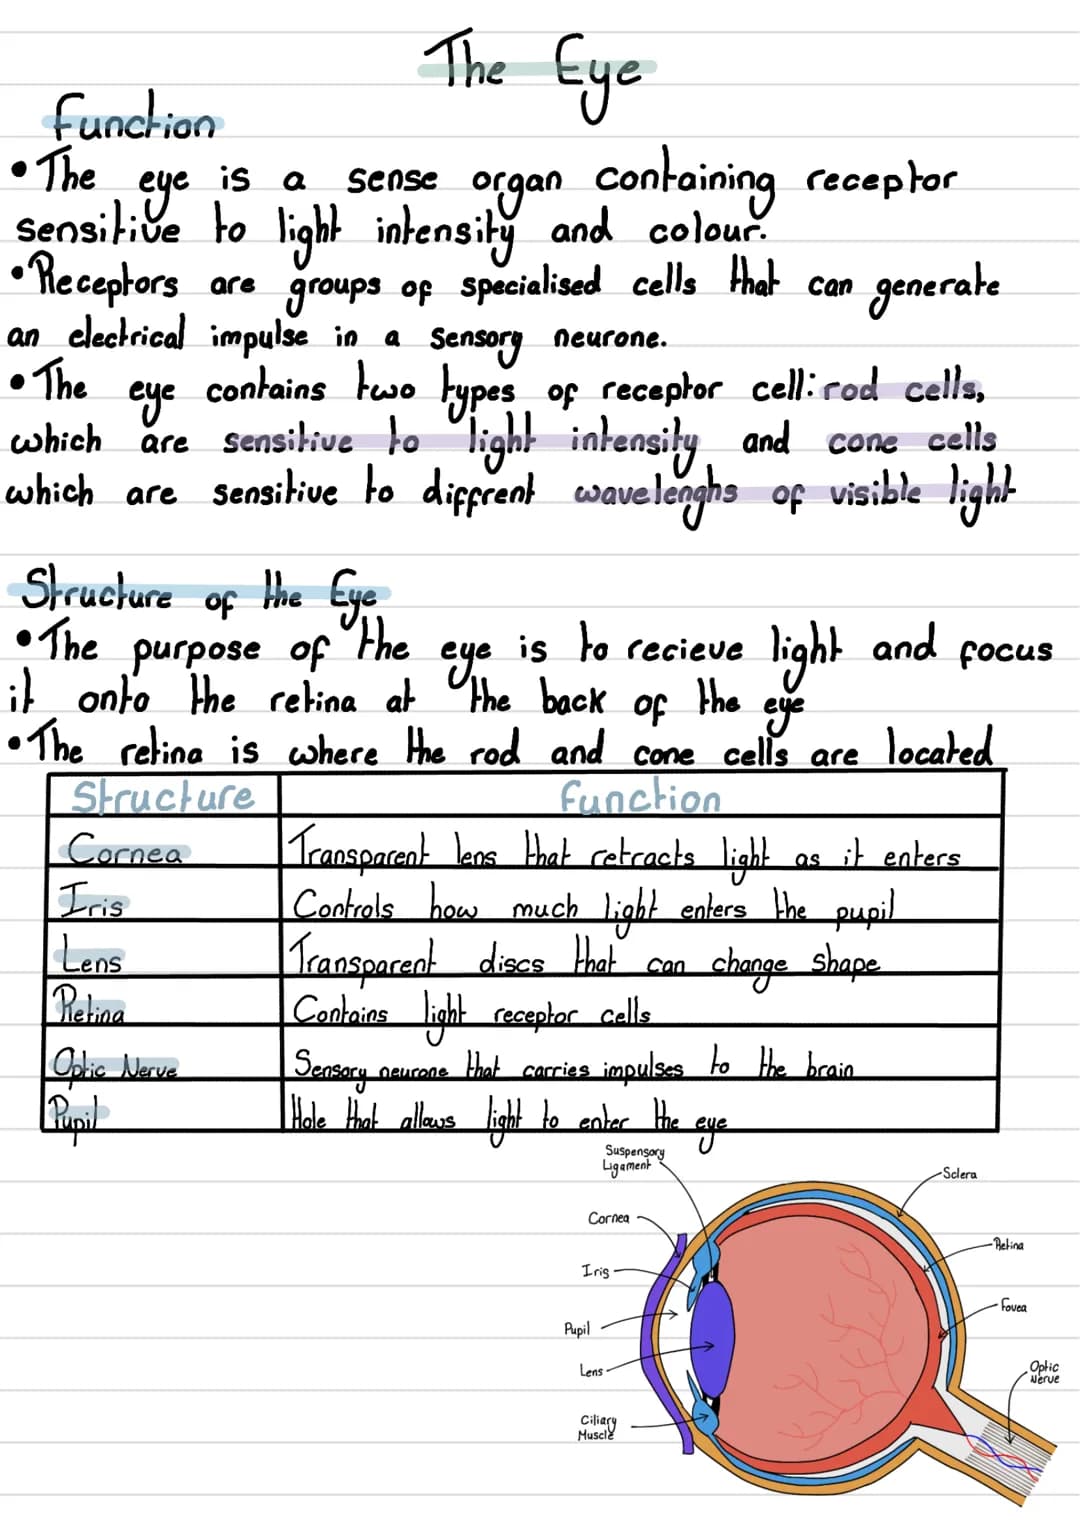 The Eye
Function
• The eye is a sense organ containing receptor
sensitive to light intensity and colour.
• Receptors are groups of specialised cells that can generate
an electrical impulse in a sensory neurone.
• The eye contains two types of receptor cell: rod cells,
which are sensitive to light intensity and cone cells
which are sensitive to diffrent wavelenghs of visible light
Structure of the Eye
• The purpose of the eye is to recieve light and focus
it onto the retina at the back of the eye
• The retina is where the rod and cone cells are located
Structure Function
Cornea Transparent lens that retracts light as it enters
Iris Controls how much light enters the pupil
Lens Transparent discs that can change shape
Retina Contains light receptor cells
Optic Nerve Sensory neurone that carries impulses to the brain
Pupil Hole that allows light to enter the eye
Suspensory
Ligament
Sclera
Cornea
Retina
Iris
Fovea
Pupil
Lens
Optic
Nerve
Ciliary
Muscle